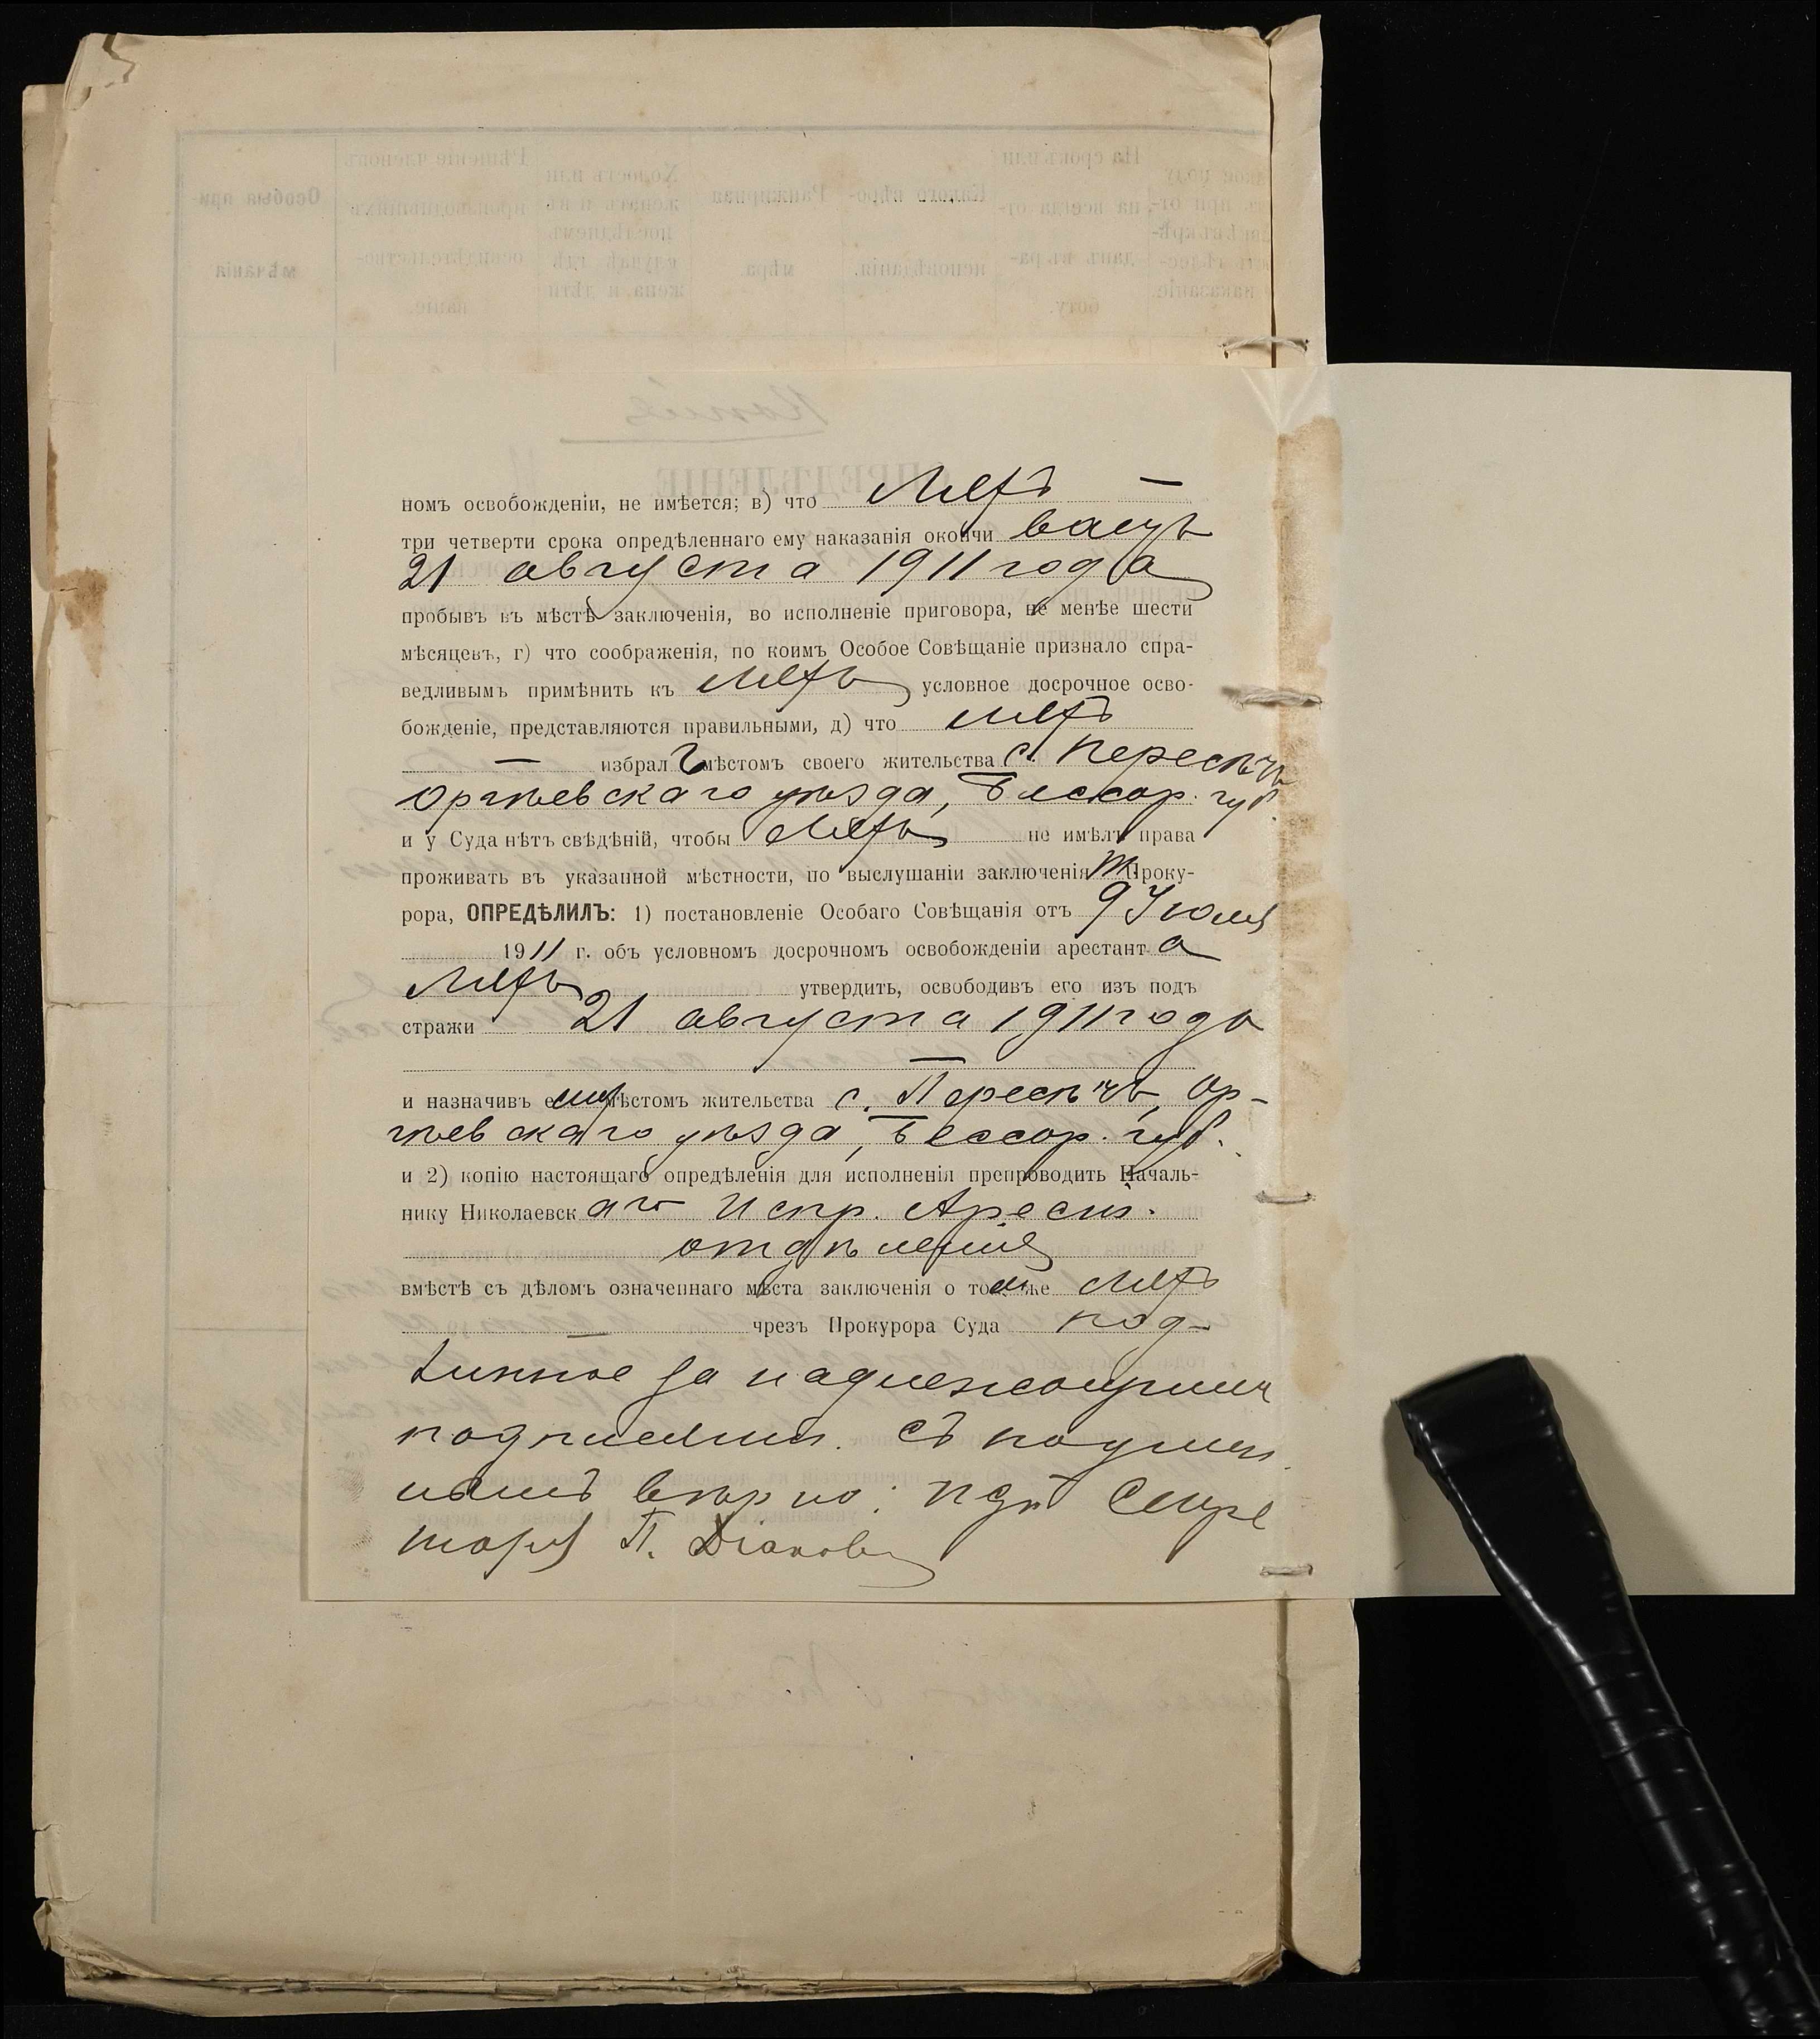 номъ освобожденіи, не имѣется; в) что Лефъ —
три четверти срока опредѣленнаго ему наказанія окончи ваетъ
21 августа 1911 года
пробывъ въ мѣстѣ заключенія, во исполненіе приговора, не менѣе шести
мѣсяцевъ, г) что соображенія, по коимъ Особое Совѣщаніе признало спра-
ведливымъ примѣнить къ условное досрочное осво-
божденіе, представляются правильными, д) что Лефъ
— избралъ мѣстомъ своего жительства с. Пересѣчь
Оргѣевскаго уѣзда, Бессар. губ.
и у Суда нѣтъ свѣдѣній, чтобы Лефъ не имѣлъ права
проживать въ указанной мѣстности, по выслушаніи заключенія Т. Проку-
рора, ОПРЕДѢЛИЛЪ: 1) постановленіе Особаго Совѣщанія отъ 9 Іюля
1911 г. объ условномъ досрочномъ освобожденіи арестант а
утвердить, освободивъ его изъ подъ
стражи 21 августа 1911 года
—
и назначивъ ему мѣстомъ жительства с. Пересѣчь, Ор-
гѣевскаго уѣзда, Бессар. губ.
и 2) копію настоящаго опредѣленія для исполненія препроводить Началь-
нику Николаевск аго Испр. Арест.
отдѣленія
вмѣстѣ съ дѣломъ означеннаго мѣста заключенія о томъ же Лефъ
— чрезъ Прокурора Суда под-
линное за надлежащими
подписями. Съ подлин.
нымъ вѣрно: Секре
тарь П. Діаковъ